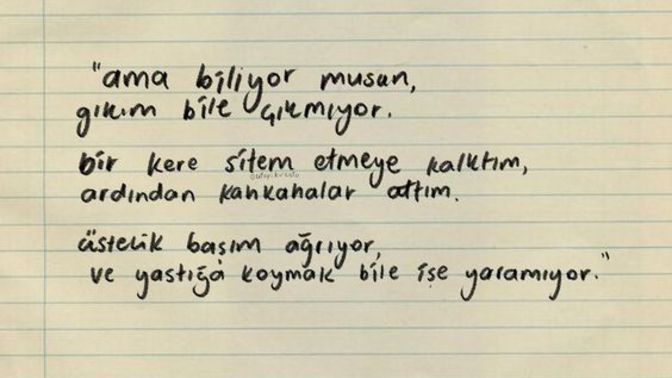 "ama biliyor musun,
gıkım bile çıkmıyor.
bir kere sitem etmeye kalktım,
ardından kahkahalar attım.
üstelik başım ağrıyor,
ve yastığa koymak bile işe yaramıyor."